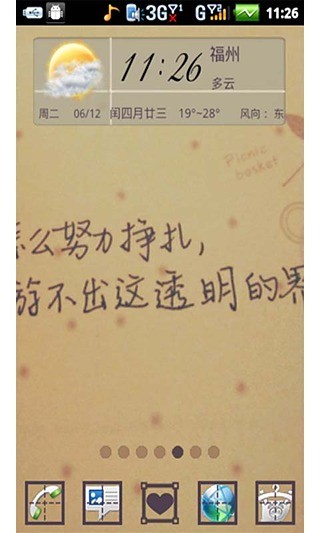 3G G 11:26
11:26 福州
多云
周二 06/12 闰四月廿三 19°~28° 风向：东
Picnic
basket
怎么努力挣扎，
游不出这透明的界